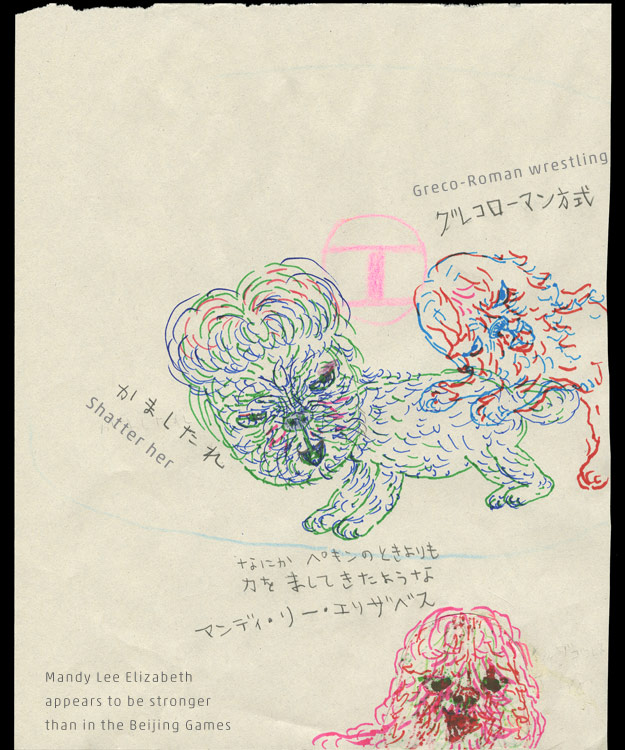 Greco-Roman wrestling
グレコローマン方式
エ
かましたれ
Shatter her
なにか ペキンのときよりも
力を ましてきたような
マンディ・リー・エリザベス
Mandy Lee Elizabeth
appears to be stronger
than in the Beijing Games